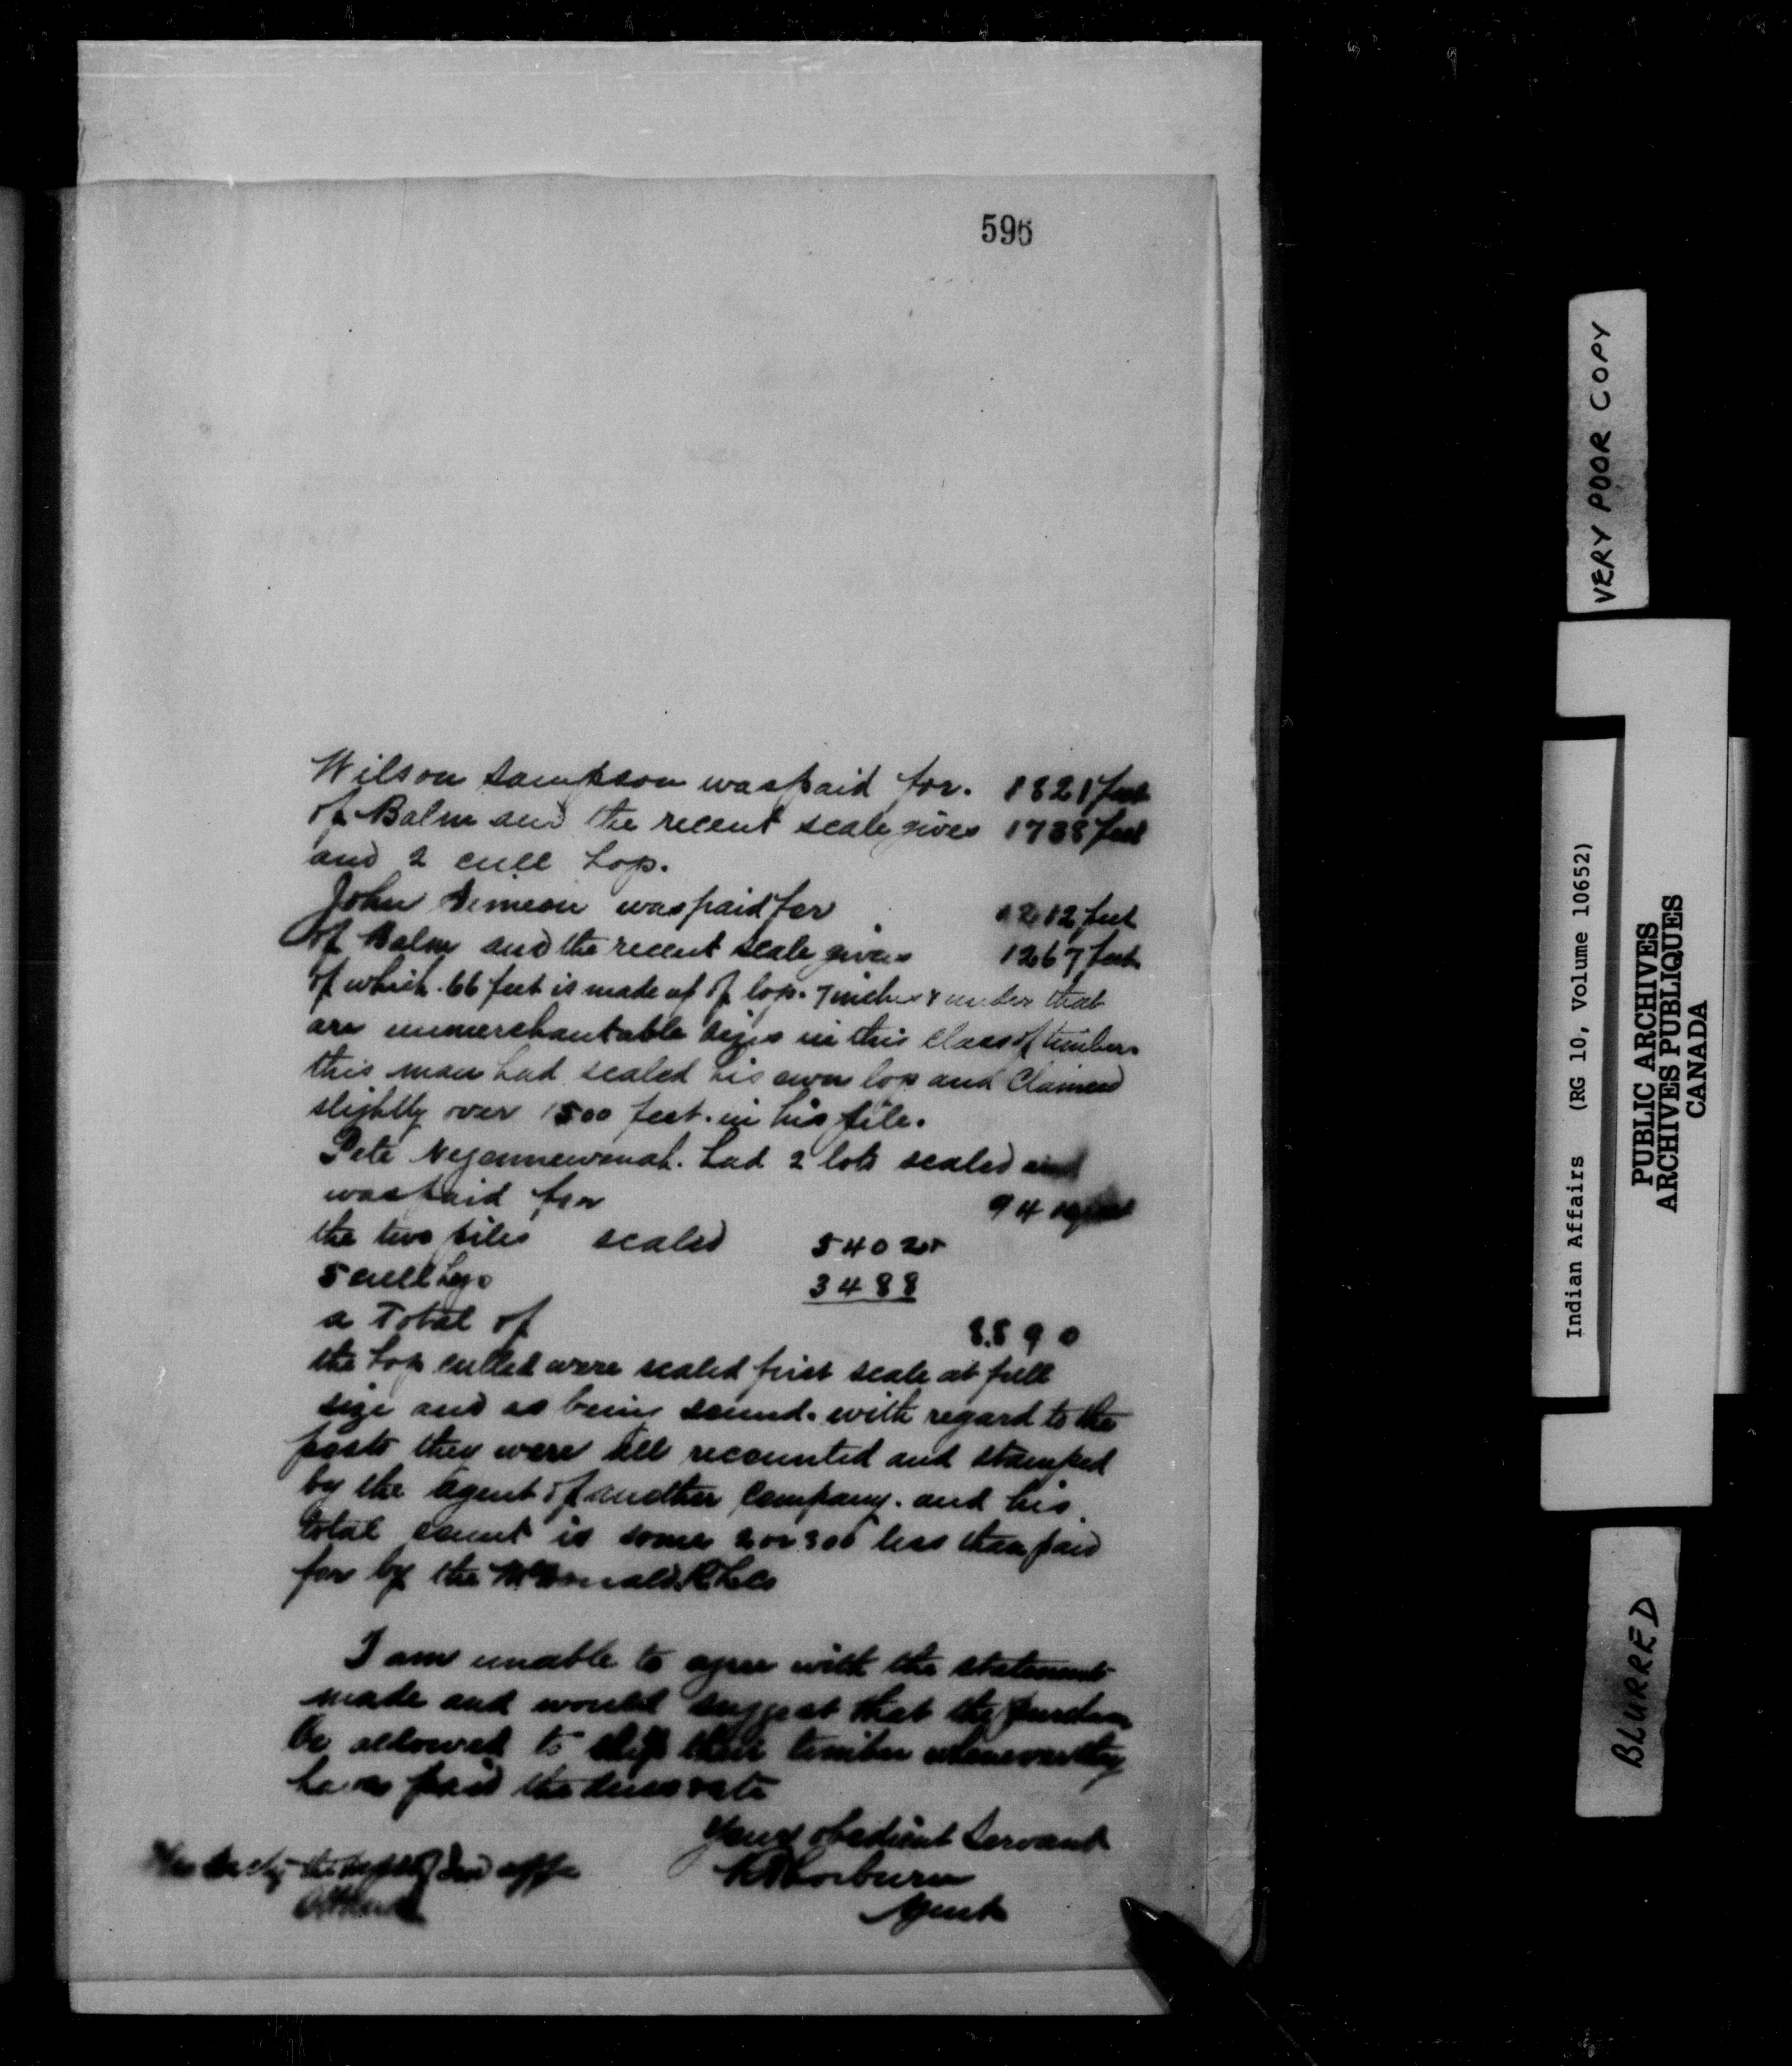 596
Wilson Sampson was paid for. 1821 feet
of Balm and the recent scale gives 1738 feet
and 2 cull Logs.
John Simeon was paid for 1212 feet
of Balm and the recent scale gives 1267 feet
of which 66 feet is made up of logs. 7 inches & under that
are unmerchantable sizes in this class of timber
this man had scaled his own logs and claimed
slightly over 1500 feet. in his pile.
Pete had 2 lots scaled and
was paid for 94
the two piles scaled 5402
5 cull Logs 3488
a Total of 8890
the Logs culled were scaled first scale at full
size and as being sound. with regard to the
posts they were all recounted and stamped
by the agent of another Company. and his
total count is some 2 or 300 less than paid
for by the McDonald
I am unable to agree with the statement
made and would suggest that the
be allowed to ship their timber whenever they
have paid the dues
Your obedient Servant
Agent
VERY POOR COPY
Indian Affairs (RG 10, Volume 10652)
PUBLIC ARCHIVES
ARCHIVES PUBLIQUES
CANADA
BLURRED